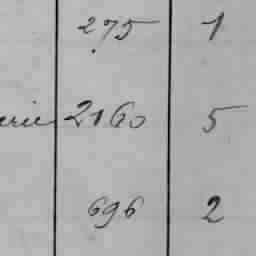 275 1
2160 5
696 2